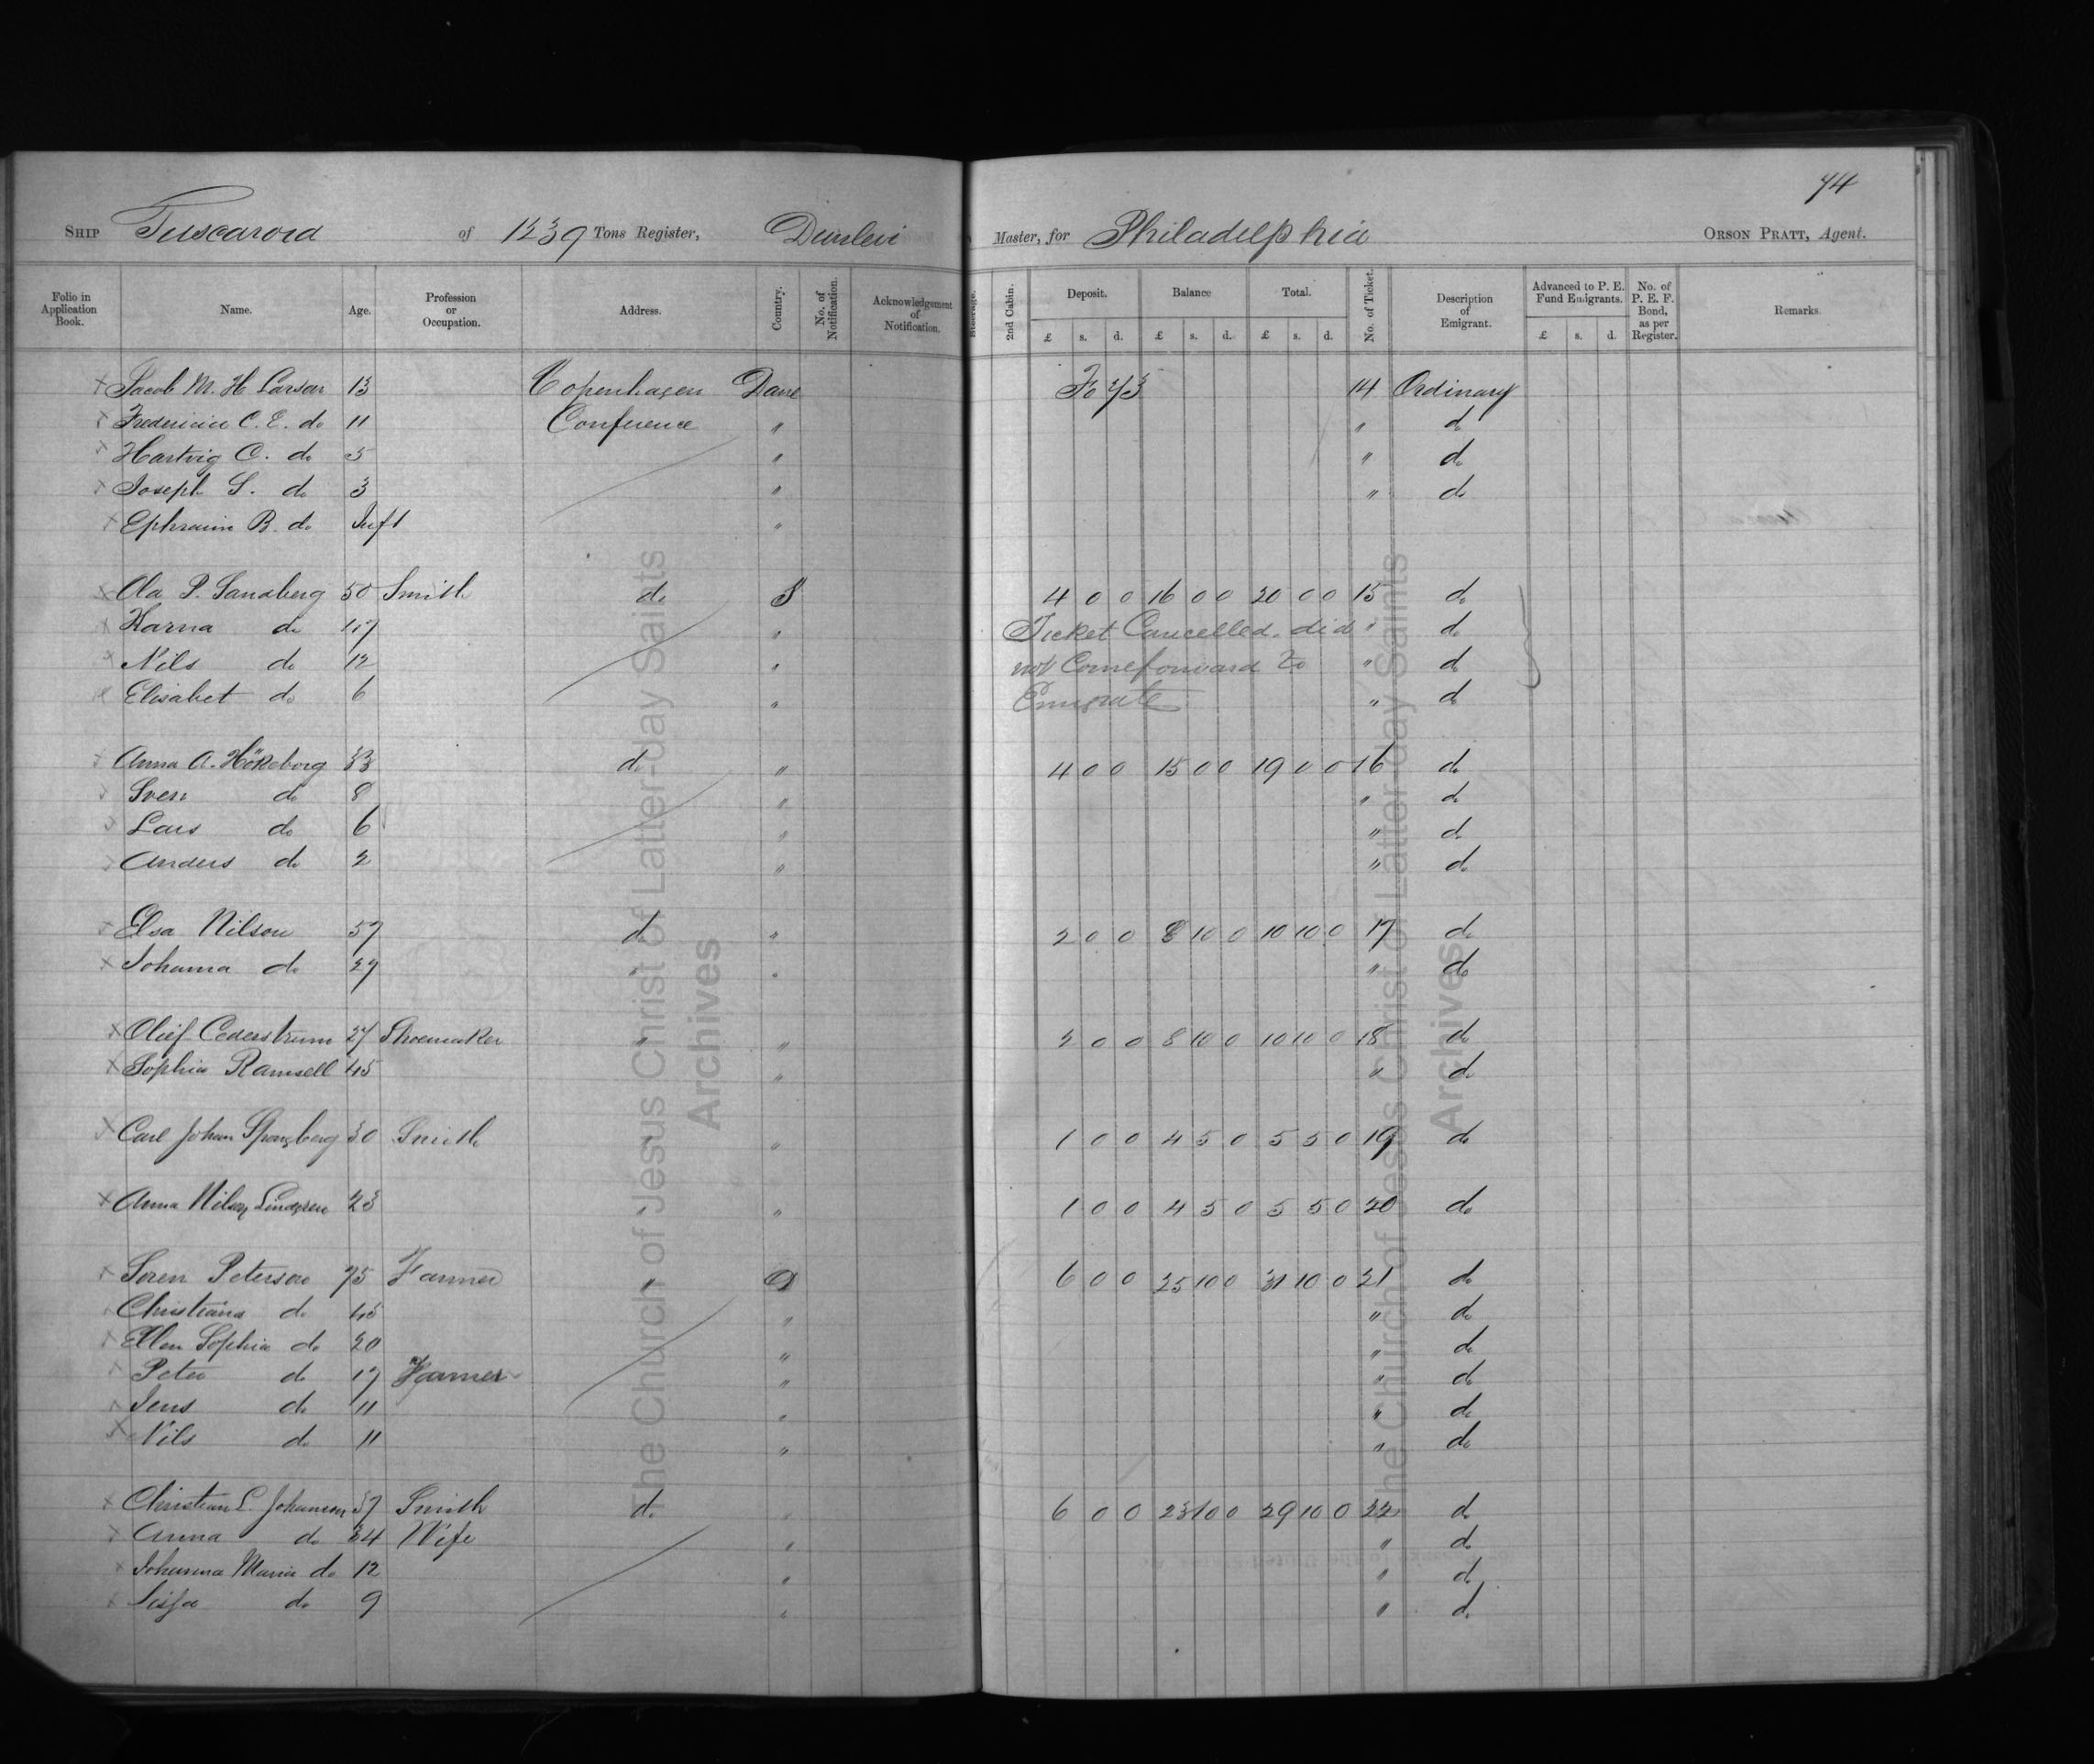 74
SHIP Tuscarora of 1239 Tons Register, Dunlevi Master, for Philadelphia ORSON PRATT, Agent.
Folio in Application Book. Name. Age. Profession or Occupation. Address. Country. No. of Notification. Acknowledgement of Notification. Steerage. 2nd Cabin. Deposit. Balance Total. No. of Ticket. Description of Emigrant. Advanced to P. E. Fund Emigrants. No. of P. E. F. Bond, as per Register. Remarks.
£ s. d. £ s. d. £ s. d. £ s. d.
Jacob M. H Larsen 13 Copenhagen Dane Fo 73 14 Ordinary
Fredericia C. E. do 11 Conference " " do
Hartvig C. do 5 " " do
Joseph S. do 3 " " do
Ephraim B. do Inft "
Ola P. Sandberg 50 Smith do S 4 0 0 16 0 0 20 0 0 15 do
Karna do 47 " Ticket Cancelled. did " do
Nils do 12 " not Come forward to " do
Elisabet do 6 " Emigrate " do
Anna A. Hökeborg 33 do " 4 0 0 15 0 0 19 0 0 16 do
Sven do 8 " " do
Lars do 6 " " do
Anders do 2 " " do
Elsa Nilson 57 do " 2 0 0 8 10 0 10 10 0 17 do
Johanna do 27 " " " do
Olief Cederstrum 27 Shoemaker " " 2 0 0 8 10 0 10 10 0 18 do
Sophia Ramsell 45 " " do
Carl Johan Spangberg 30 Smith " " 1 0 0 4 5 0 5 5 0 19 do
Anna Nilson Lindgren 23 " " 1 0 0 4 5 0 5 5 0 20 do
Soren Peterson 75 Farmer " D 6 0 0 25 10 0 31 10 0 21 do
Christiana do 45 " " do
Ellen Sophia do 20 " " do
Peter do 17 Farmer " " do
Jens do 11 " " do
Nils do 11 " " do
Christian L. Johansen 37 Smith do " 6 0 0 23 10 0 29 10 0 22 do
Anna do 34 Wife " " do
Johanna Maria do 12 " " do
do 9 " " do
The Church of Jesus Christ of Latter-day Saints
Archives
The Church of Jesus Christ of Latter-day Saints
Archives